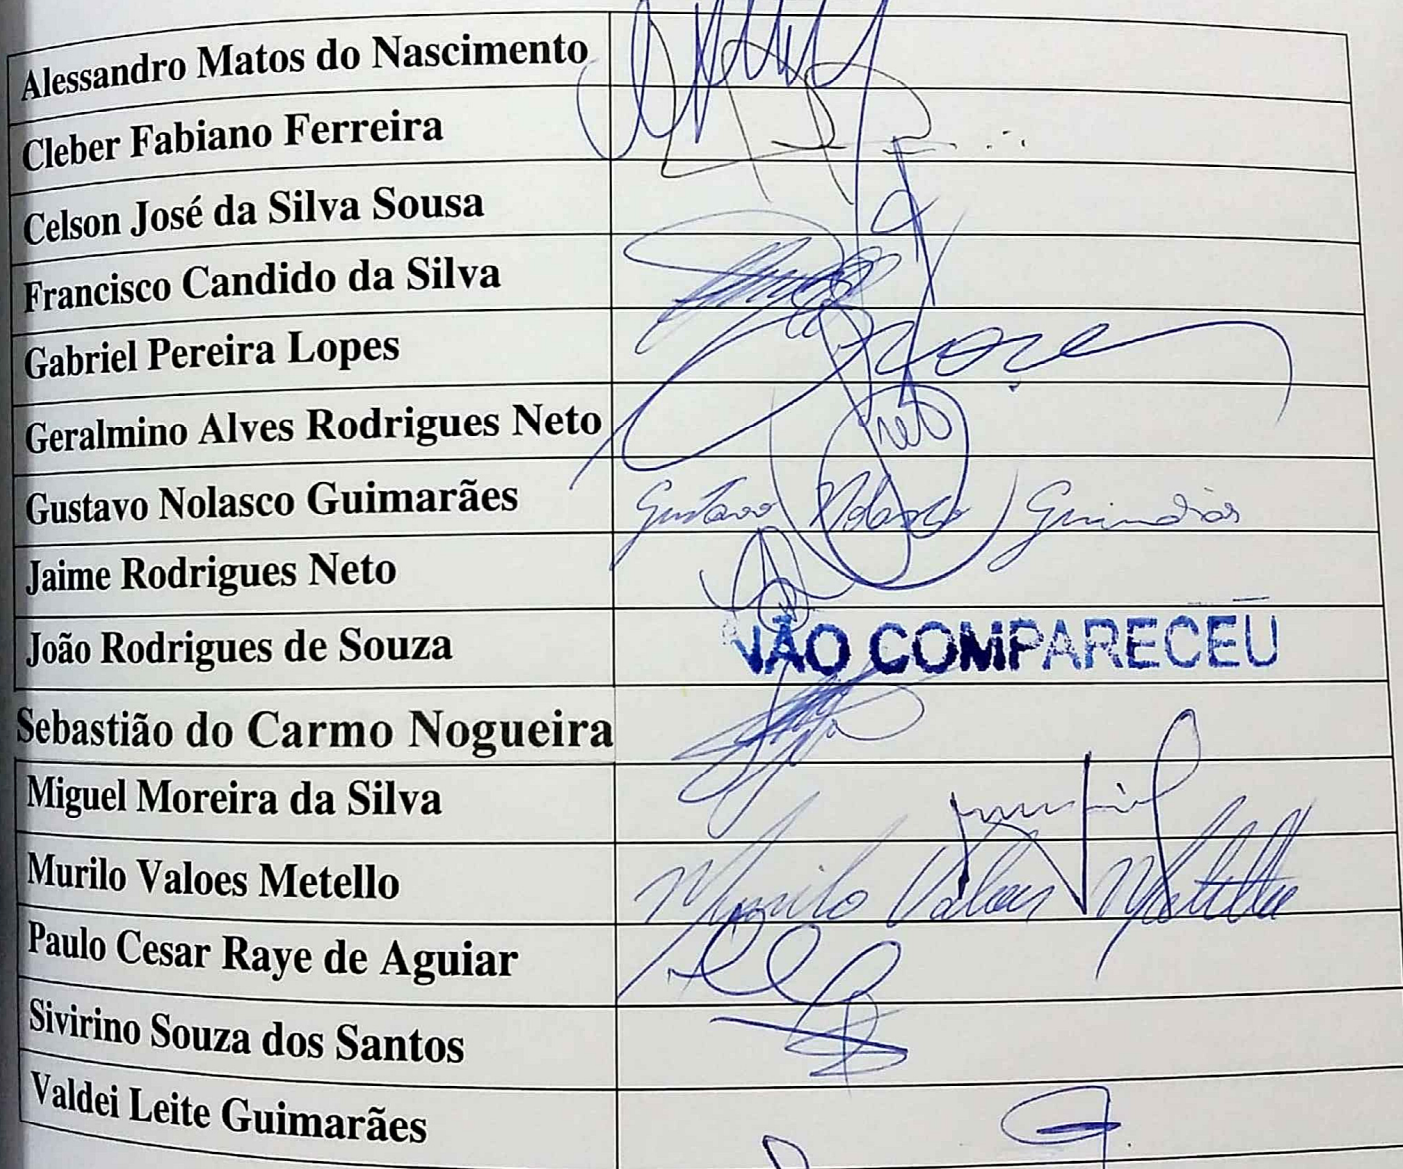 Alessandro Matos do Nascimento
Cleber Fabiano Ferreira
Celson José da Silva Sousa
Francisco Candido da Silva
Gabriel Pereira Lopes
Geralmino Alves Rodrigues Neto
Gustavo Nolasco Guimarães Gustavo Nolasco Guimarães
Jaime Rodrigues Neto
João Rodrigues de Souza NÃO COMPARECEU
Sebastião do Carmo Nogueira
Miguel Moreira da Silva
Murilo Valoes Metello Murilo Valoes Metello
Paulo Cesar Raye de Aguiar
Sivirino Souza dos Santos
Valdei Leite Guimarães